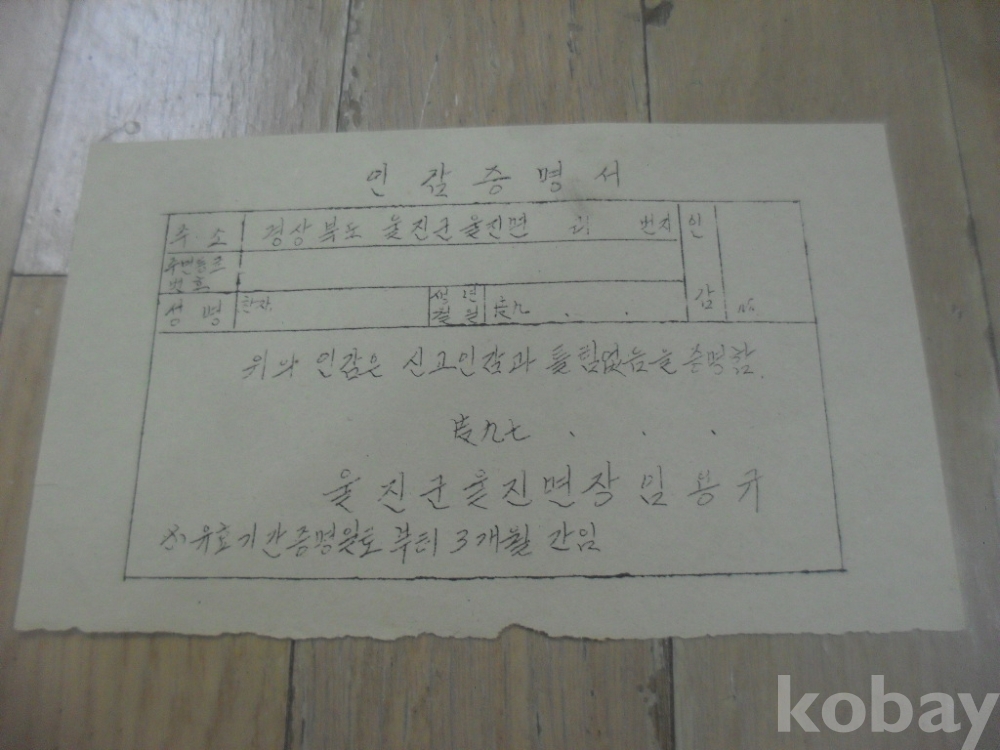 인감증명서
주소 경상북도 울진군울진면 리 번지 인감
주민등록번호
성명 한자 생년월일 一九 . .
위와 인감은 신고인감과 틀림없음을 증명함.
一九七 . . .
울진군울진면장 임용규
유효기간증명일로부터 3개월간임
kobay